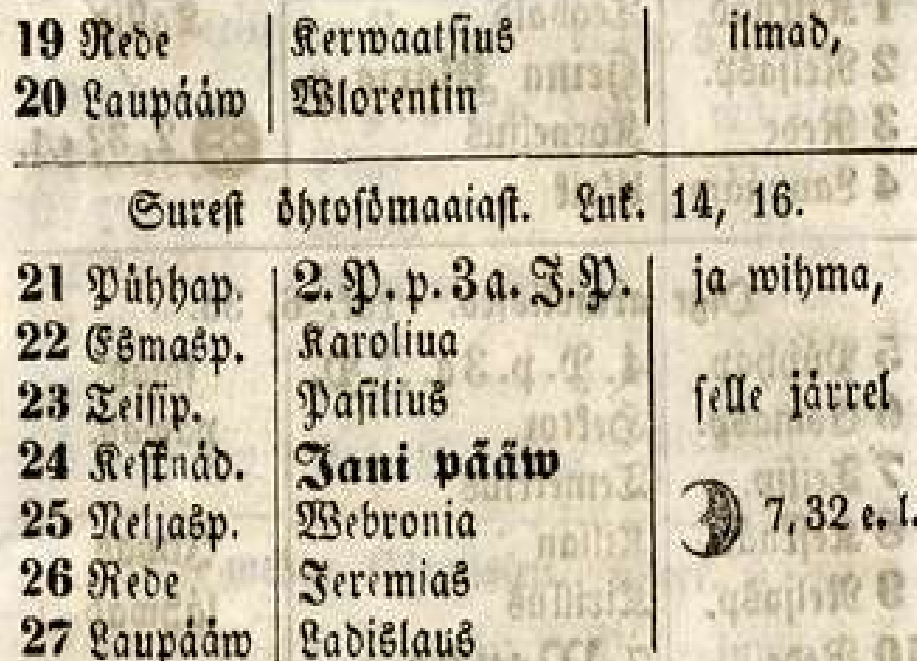 19 Rede Kerwaatsius ilmad,
20 Laupääw Wlorentin
Surest öhtosömaaiast. Luk. 14, 16.
21 Pühhap. 2. P. p. 3 a. J. P. ja wihma,
22 Esmasp. Karoliua
23 Teisip. Pasilius selle järrel
24 Kesknäd. Jani pääw
25 Neljasp. Webronia 7, 32 e. l.
26 Rede Jeremias
27 Laupääw Ladislaus